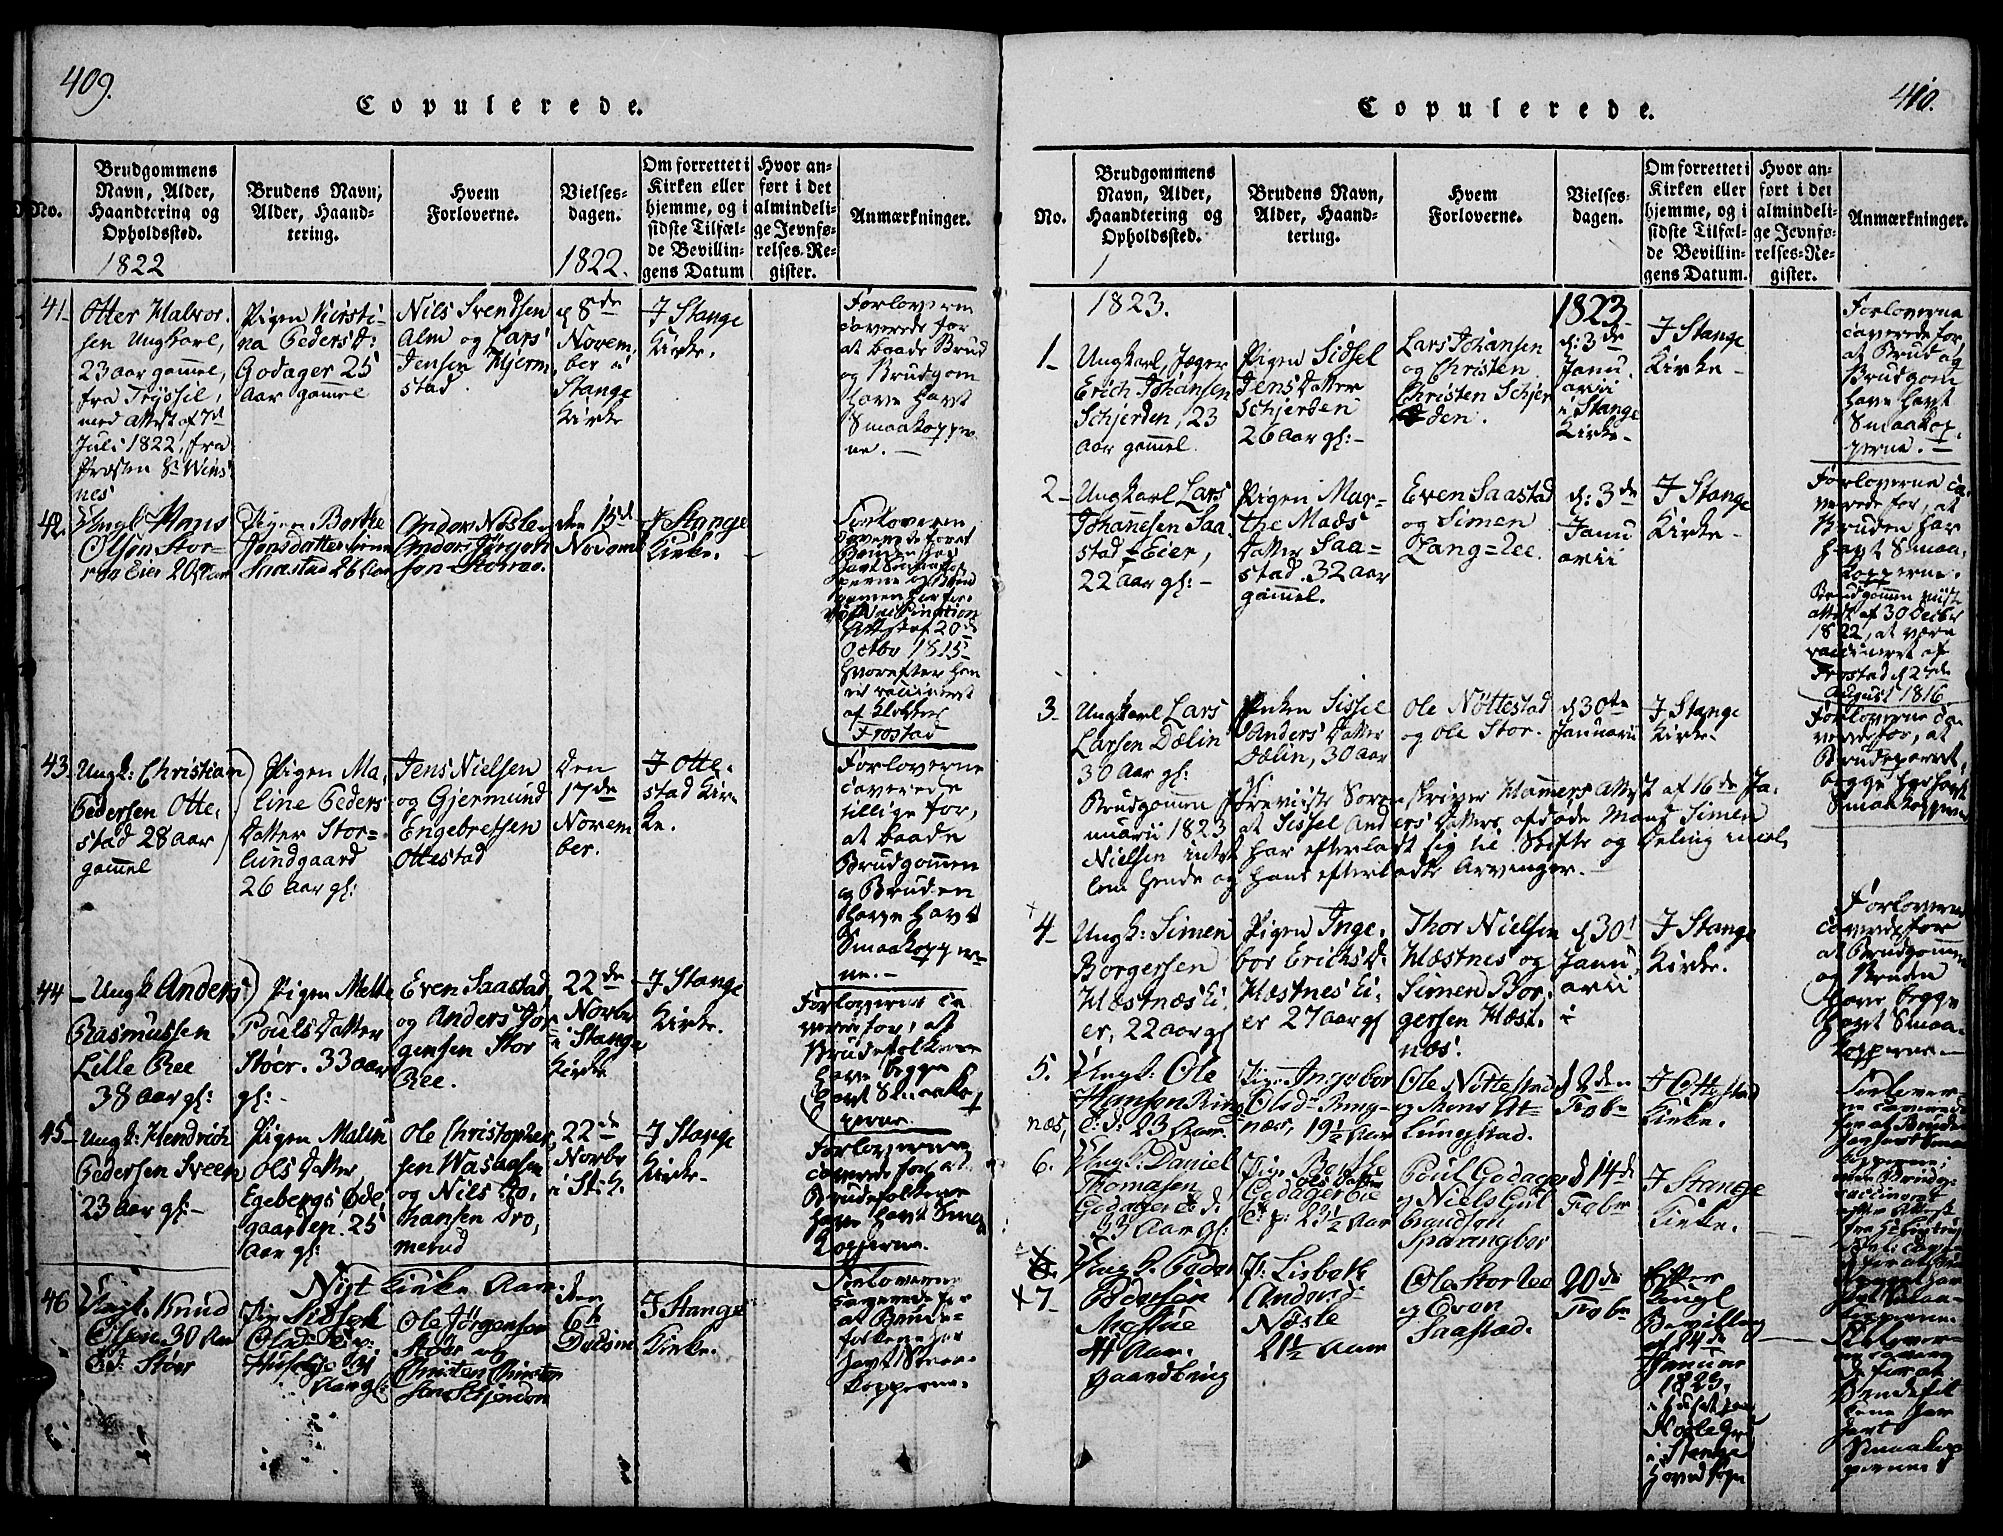 409.
Copulerede.
No.
Brudgommens
Navn, Alder,
Haandtering og
Opholdssted.
1822
Brudens Navn,
Alder, Haand-
tering.
Hvem
Forloverne.
Vielses-
dagen.
1822.
Om forrettet i
Kirken eller
hjemme, og i
sidste Tilfæl-
de Bevillin-
gens Datum
Hvor an-
ført i det
almindeli-
ge Jevnfø-
relses-Re-
gister.
Anmærkninger.
41
Otter Halvor-
sen Ungkarl,
23 aar gammel,
fra Trÿssel,
med Attest af 7de
Juli 1822, fra
Prosten Hr Wins-
nes
Pigen Kirsti-
na Pedersd:
Godager 25
Aar gammel
Nils Svendsen
Alm og Lars
Jensen Hjerm
stad
d 8de
Novem
ber i
Stange
Kirke
I Stange
Kirke.
Forloverne
caverede for
at baade Brud
og Brudgom
have havt
Smaakopper
ne. -
42.
Ungk: Hans
Olsen Stor-
ree Eier 20 Aar
Pigen Berthe
Jensdatter
Saastad 26 Aar
Anders Nøsle
Anders Jørgen
sen Storree
den 15de
Novemb
I Stange
Kirke.
Forloverne
caverede for at
Bruden har
havt Smaakop
perne og Brud
gommen har fore
vist Vaccination
Attest af 20de
Octbr 1815
hvorefter han
er vaccineret
af Klokker
Frostad
43
Ungk: Christian
Pedersen Otte-
stad 28 aar
gammel
Pigen Ma-
line Peders
Datter Stor-
lundgaard
26 Aar gl:
Jens Nielsen
og Gjermund
Engebretsen
Ottestad
Den
17de
Novem
ber.
I Otte-
stad Kir-
ke.
Forloverne
caverede
tillige for,
at baade
Brudgommen
og Bruden
have havt
Smaakopper-
ne. -
44
Ungk Anders
Rasmussen
Lille Ree
38 Aar gl:
Pigen Mette
Pouls Datter
Stoer. 33 aar
gl: -
Even Saastad
og Anders Jør
gensen Stor
Ree.
22de
Novbr
i Stange
Kirke
I Stange
Kirke.
Forloverne ca
verede for, at
Brudefolkene
have begge
havt Smaakop
perne.
45
Ungk: Hendrich
Pedersen Sveen
23 Aar gl: -
Pigen Malin
Ols Datter
Egebergs Øde-
gaarden. 25
Aar gl:
Ole Christopher-
sen Wasaasen
og Nils Jo-
hansen Dro-
merud
22de
Novbr
i St: K.
I Stange
Kirke
Forloverne
caverede for, at
Brudefolkene
have havt Smaa
kopperne.
Nyt Kirke Aar.
46
Ungk: Knud
Olsen 30 Aar
Stoer
Pige Sidsel
Olsd:
31
Aar gl:
Ole Jørgensen
Stoer og
Christen Christen
sen Schjerden
den
6te
Decbr
I Stange
Kirke.
Forloverne
caverede for
at Brude-
folkene har
havt Smaa-
kopperne.
410.
Copulerede.
No.
Brudgommens
Navn, Alder,
Haandtering og
Opholdssted.
Brudens Navn,
Alder, Haand-
tering.
Hvem
Forloverne.
Vielses-
dagen.
Om forrettet i
Kirken eller
hjemme, og i
sidste Tilfæl-
de Bevillin-
gens Datum.
Hvor an-
ført i det
almindeli-
ge Jevnfø-
relses-Re-
gister.
Anmærkninger.
1823.
1823
1
Ungkarl, Jæger
Erich Johansen
Schjerden, 23
Aar gammel.
Pigen Sidsel
Jens Datter
Schjerden
26 Aar gl: -
Lars Johansen
og Christen
Christen Schjer
den.
d: 3de
Janu
arii
i Stange
Kirke -
I Stange
Kirke -
Forloverne
caverede for,
at Brud og
Brudgom
have havt
Smaakop-
perne. -
2
Ungkarl Lars
Johannesen Saa
stad Eier,
22 Aar gl: -
Pigen Mar-
the Mads
Datter Saa-
stad. 32 Aar
gammel.
Even Saastad
og Simen
Lang-Lee.
d: 3de
Janu
arii
I Stange
Kirke -
Forloverne ca-
verede for, at
Bruden har
havt Smaa-
kopperne.
Brudgommen viiste
attest af 30 Decbr
1822, at være
vaccineret af
Frostad d 27de
August 1816
3
Ungkarl Lars
Larsen Dælin
30 Aar gl:
Enken Sissel
Anders Datter
Dælin, 30 Aar
Ole Nöttestad
og Ole Stor.
d 30te
Januarii
I Stange
Kirke.
Forloverne ca-
verede for, at
Brudeparret
begge har havt
Smaakopperne
Brudgommen foreviiste Sorenskriver Hammers Attest af 16de Ja-
nuarii 1823 at Sissel Anders Datters afdøde Mand Simen
Nielsen intet har efterladt sig til Skifte og Deling imel-
lem hende og hans efterladte Arvinger. -
4
Ungk: Simen
Borgersen
Hæstnæs Ei-
er, 22 aar gl
Pigen Inge-
bor Erichsd.
Hæstnes Ei-
er 27 aar gl
Thor Nielsen
Hæstnes og
Simen Bor-
gersen Hæst-
næs.
d 30t
Janu
arii
I Stange
Kirke.
Forloverne
caverede for
at Brudgommen
og Bruden
have begge
havt Smaa-
kopperne -
5.
Ungk: Ole
Hansen Ring
næs,
E: d: 23 Aar.
Pige Ingebor
Olsd Ring-
næs, 19½ Aar
Ole Nöttestad
og Mons At-
lungstad.
d 2den
Febr
I Ottestad
Kirke.
6.
Ungk: Daniel
Tomasen
Godager E. d.
23 Aar gl:
Pige Berthe
Ols Datter
Godager Eie
E: p: 23½ Aar
Poul Godager
og Niels Gul
brandsen
Sparingbor
d 14de
Febr
I Stange
Kirke.
7
Ungk. Peder
Pedersen
Møstue
41 Aar.
Haandtering
P: Lisbeth
Andersd:
Nøsle
21½ Aar
Ole Stor Lee
og Even
Saastad.
20de
Febr
Efter
Kongl
Bevilling
af 14de
Januar
1823,
Nøsle
i Stange
Hovedsogn
Forlover-
ne caverede
for at
Brudefol
kene har
havt
Smaakop
perne